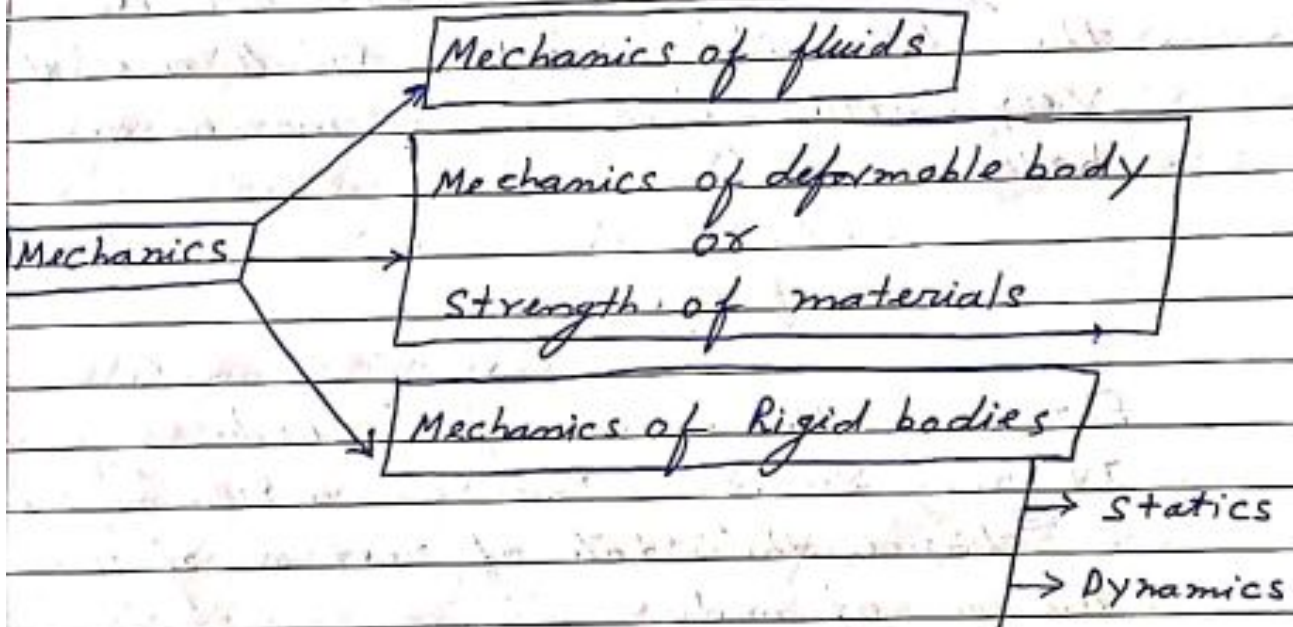 Mechanics of fluids
Mechanics of deformable body
or
Mechanics
Strength of materials
Mechanics of Rigid bodies
Statics
Dynamics